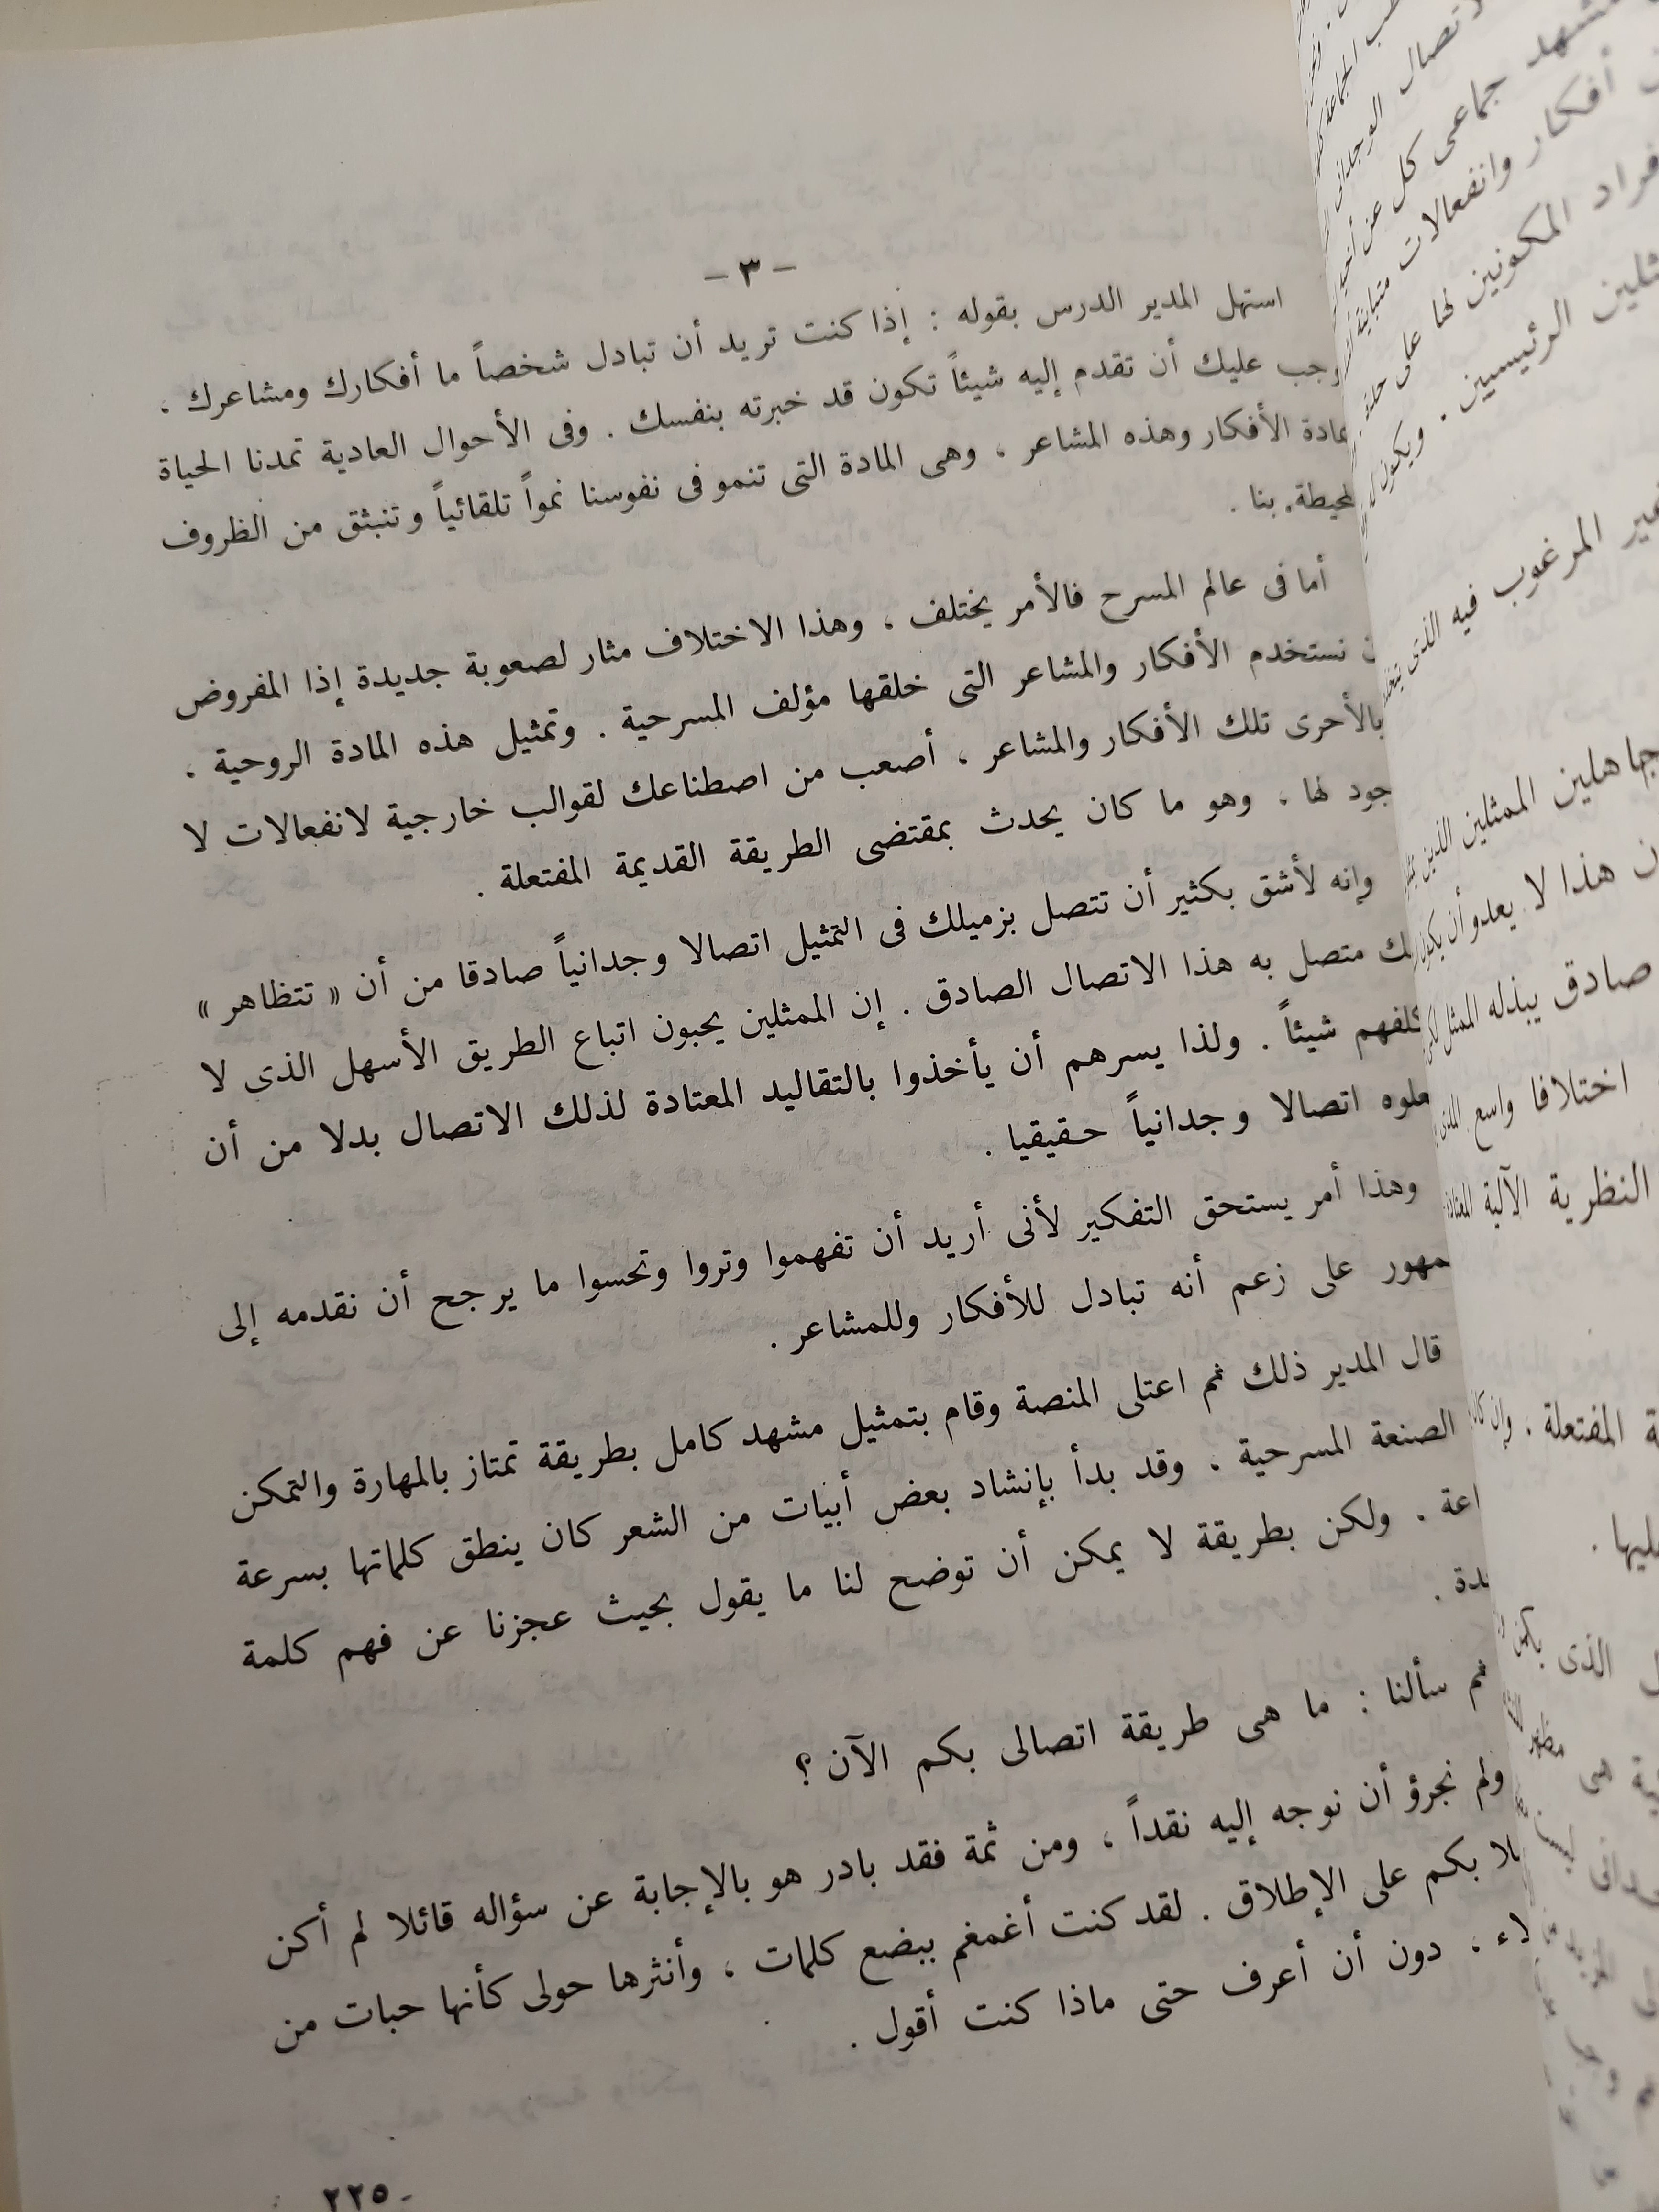 - ٣ -
استهل المدير الدرس بقوله : إذا كنت تريد أن تبادل شخصاً ما أفكارك ومشاعرك ،
وجب عليك أن تقدم إليه شيئاً تكون قد خبرته بنفسك . وفى الأحوال العادية تمدنا الحياة
الأفكار وهذه المشاعر ، وهى المادة التى تنمو فى نفوسنا نمواً تلقائياً وتنبثق من الظروف
المحيطة بنا .
أما فى عالم المسرح فالأمر يختلف ، وهذا الاختلاف مثار لصعوبة جديدة إذا المفروض
نستخدم الأفكار والمشاعر التى خلقها مؤلف المسرحية . وتمثيل هذه المادة الروحية ،
بالأحرى تلك الأفكار والمشاعر ، أصعب من اصطناعك لقوالب خارجية لانفعالات لا
لها ، وهو ما كان يحدث بمقتضى الطريقة القديمة المفتعلة .
وإنه لأشق بكثير أن تتصل بزميلك فى التمثيل اتصالا وجدانياً صادقا من أن « تتظاهر »
متصل به هذا الاتصال الصادق . إن الممثلين يحبون اتباع الطريق الأسهل الذى لا
شيئاً . ولذا يسرهم أن يأخذوا بالتقاليد المعتادة لذلك الاتصال بدلا من أن
اتصالا وجدانياً حقيقيا .
وهذا أمر يستحق التفكير لأنى أريد أن تفهموا وتروا وتحسوا ما يرجح أن نقدمه إلى
على زعم أنه تبادل للأفكار وللمشاعر .
قال المدير ذلك ثم اعتلى المنصة وقام بتمثيل مشهد كامل بطريقة تمتاز بالمهارة والتمكن
الصنعة المسرحية . وقد بدأ بإنشاد بعض أبيات من الشعر كان ينطق كلماتها بسرعة
. ولكن بطريقة لا يمكن أن توضح لنا ما يقول بحيث عجزنا عن فهم كلمة
ثم سألنا : ما هى طريقة اتصالى بكم الآن ؟
ولم نجرؤ أن نوجه إليه نقداً ، ومن ثمة فقد بادر هو بالإجابة عن سؤاله قائلا لم أكن
بكم على الإطلاق . لقد كنت أغمغم ببضع كلمات ، وأنثرها حولى كأنها حبات من
، دون أن أعرف حتى ماذا كنت أقول .
٢٢٥
جماعى كل عن
أفكار وانفعالات متباينة
المكونين لها على
الرئيسيين . ويكون
المرغوب فيه الذى
الممثلين الذين
هذا لا يعدو أن يكون
صادق يبذله الممثل
اختلافا واسع المدى
النظرية الآلية المعتادة
المفتعلة ، وإن كان
الذى يكمن
هى